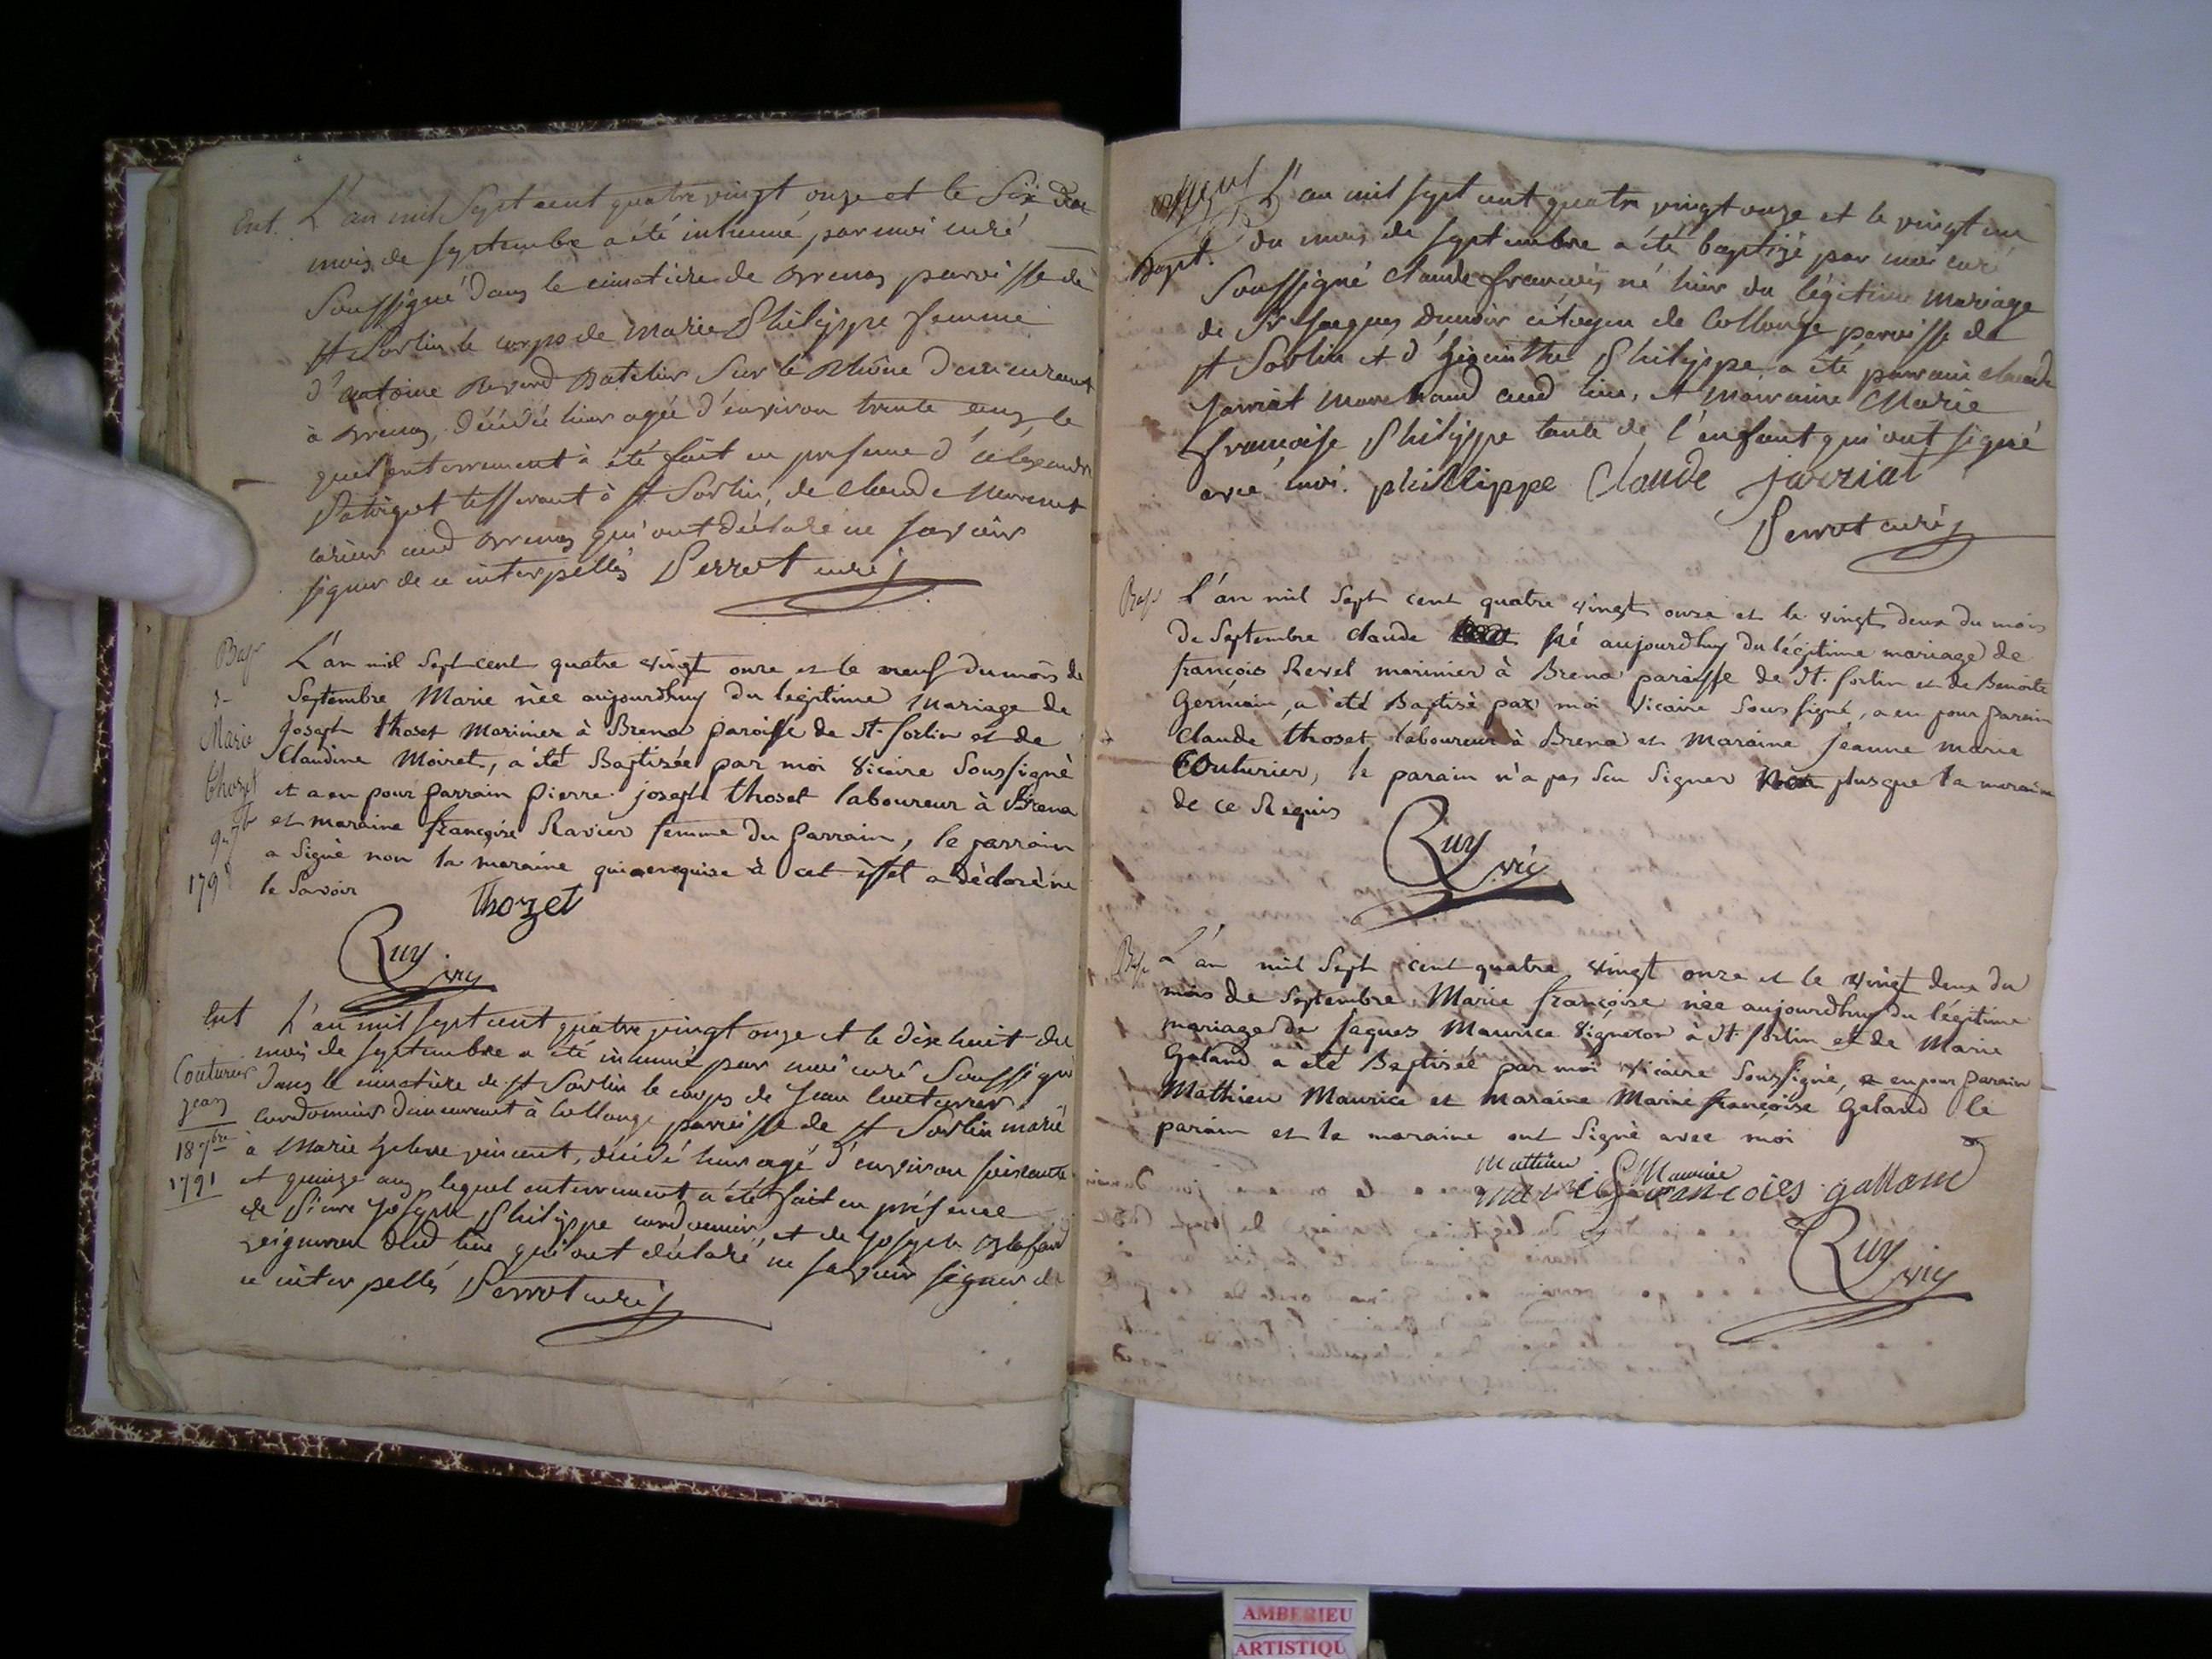 Ent. L'an mil Sept cent quatre vingt onze et le Six du
mois de septembre a été inhumé par moi curé
Soussigné dans le cimetière de Brenaz paroisse de
st Sorlin le corps de Marie Philippe femme
d'antoine Revord Batelier sur le Rhône demeurant
à Brenaz, décédée hier agée d'environ trente ans, le
quel enterrement a été fait en presence d'alexandre
tisserant à st Sorlin, de claude
aud Brenaz qui ont déclaré ne savoir
signer de ce interpellés Perret curé
Bap L'an mil Sept cent quatre vingt onze et le neuf du mois de
Septembre Marie née aujourdhuy du legitime mariage de
Marie Joseph thoset Marinier à Brena paroisse de St. sorlin et de
Claudine Moiret, a été Baptisée par moi vicaire soussigné
thozet et a eu pour parrain pierre joseph thoset laboureur à Brena
9 7bre et maraine françoise Ravier femme du parrain, le parrain
a signé non la maraine qui enrequise à cet effet a déclaré ne
179 le savoir
thozet
Ruy vic
Ent L'an mil sept cent quatre vingt onze et le dix huit du
mois de septembre a été inhumé par moi curé Soussigné
Couturier dans le cimetière de st Sorlin le corps de Jean Couturier
jean cordonnier demeurant à Collonge paroisse de st Sorlin marié
18 7bre à Marie vincent, décédé hier agé d'environ soixante
1791 et quinze ans, lequel enterrement a été fait en présence
de Pierre Joseph Philippe cordonnier, et de Joseph
vigneron dud lieu qui ont déclaré ne savoir signer de
ce interpellés Perret curé
L'an mil sept cent quatre vingt onze et le vingt un
Bapt. du mois de septembre a été baptizé par moi curé
Soussigné Claude françois né hier du légitime mariage
de Sr Jacques Dunoir citoyen de Collonge paroisse de
st Sorlin et d'hiacinthe Philippe, a été parrain claude
Jarriat marchand aud lieu, et mairaine Marie
françoise Philippe tante de l'enfant qui ont signé
avec moi. phillippe Claude jarriat
Perret curé
Bap L'an mil Sept cent quatre vingt onze et le vingt deux du mois
de Septembre claude né aujourdhuy du légitime mariage de
françois Revel marinier à Brena paroisse de St. sorlin et de Benoite
Germain, a été Baptisé par moi vicaire soussigné, a eu pour parain
Claude thoset, laboureur à Brena et maraine jeanne marie
Couturier, le parain n'a pas seu signer non plus que la maraine
de ce Requis
Ruy vic
Bap L'an mil Sept cent quatre vingt onze et le vingt deux du
mois de Septembre, Marie françoise née aujourdhuy du légitime
mariage de Jaques Maurice vigneron à St sorlin et de Marie
Galand a été Baptisée par moi vicaire soussigné, a eu pour parain
Mathieu Maurice et maraine Marie françoise Galand le
parain et la maraine ont signé avec moi
Mathieu Maurice
marie francoise galland
Ruy vic
AMBERIEU
ARTISTIQU